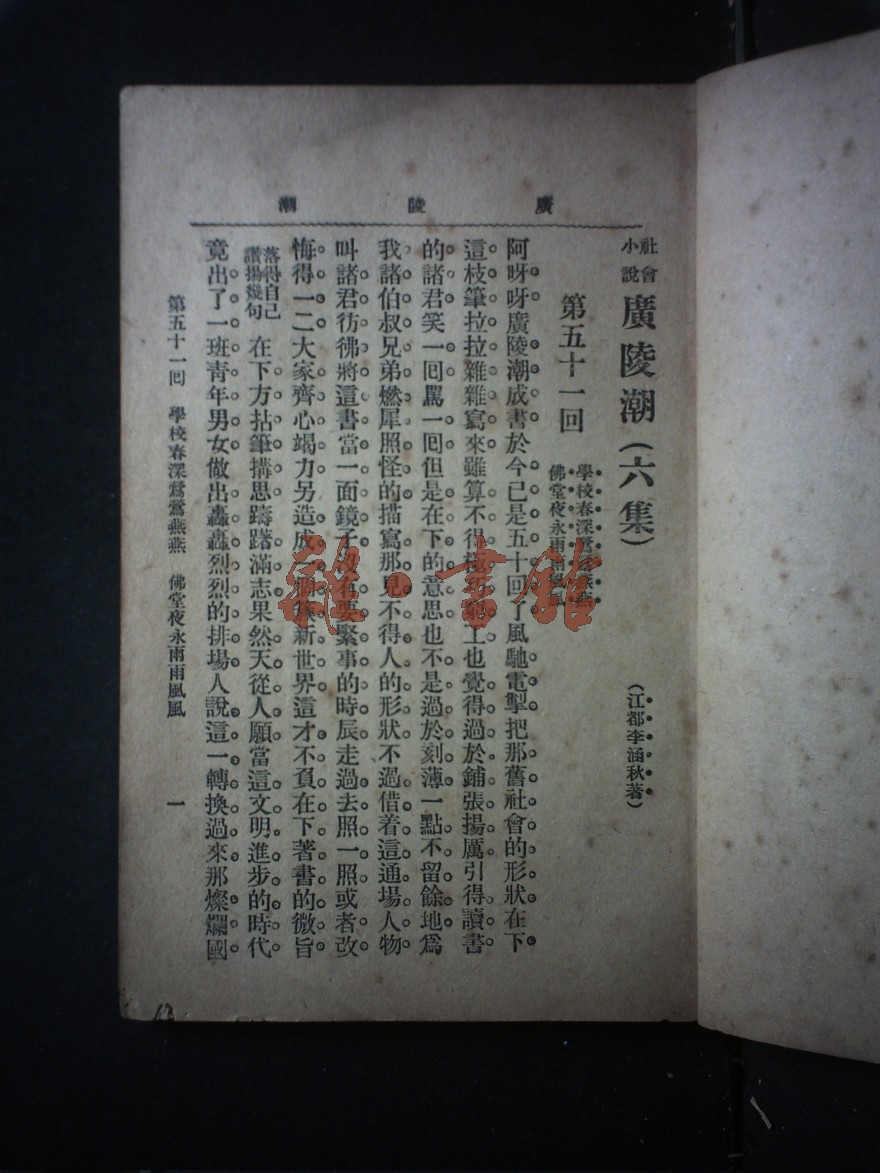 廣陵潮
社會小說 廣陵潮（六集）
（江都李涵秋著）
第五十一回
學校春深鶯鶯燕燕
佛堂夜永雨雨風風
阿呀呀廣陵潮成書於今已是五十回了風馳電掣把那舊社會的形狀在下
這枝筆拉拉雜雜寫來雖算不得極巧窮工也覺得過於鋪張揚厲引得讀書
的諸君笑一回罵一回但是在下的意思也不是過於刻薄一點不留餘地爲
我諸伯叔兄弟燃犀照怪的描寫那見不得人的形狀不過借着這通場人物
叫諸君彷彿將這書當一面鏡子沒有要緊事的時辰走過去照一照或者改
悔得一二大家齊心竭力另造成一個簇新世界這才不負在下著書的微旨
落得自己讚揚幾句 在下方拈筆搆思躊躇滿志果然天從人願當這文明進步的時代
竟出了一班靑年男女做出轟轟烈烈的排場人說這一轉換過來那燦爛國
第五十一回 學校春深鶯鶯燕燕 佛堂夜永雨雨風風 一
雜·書館